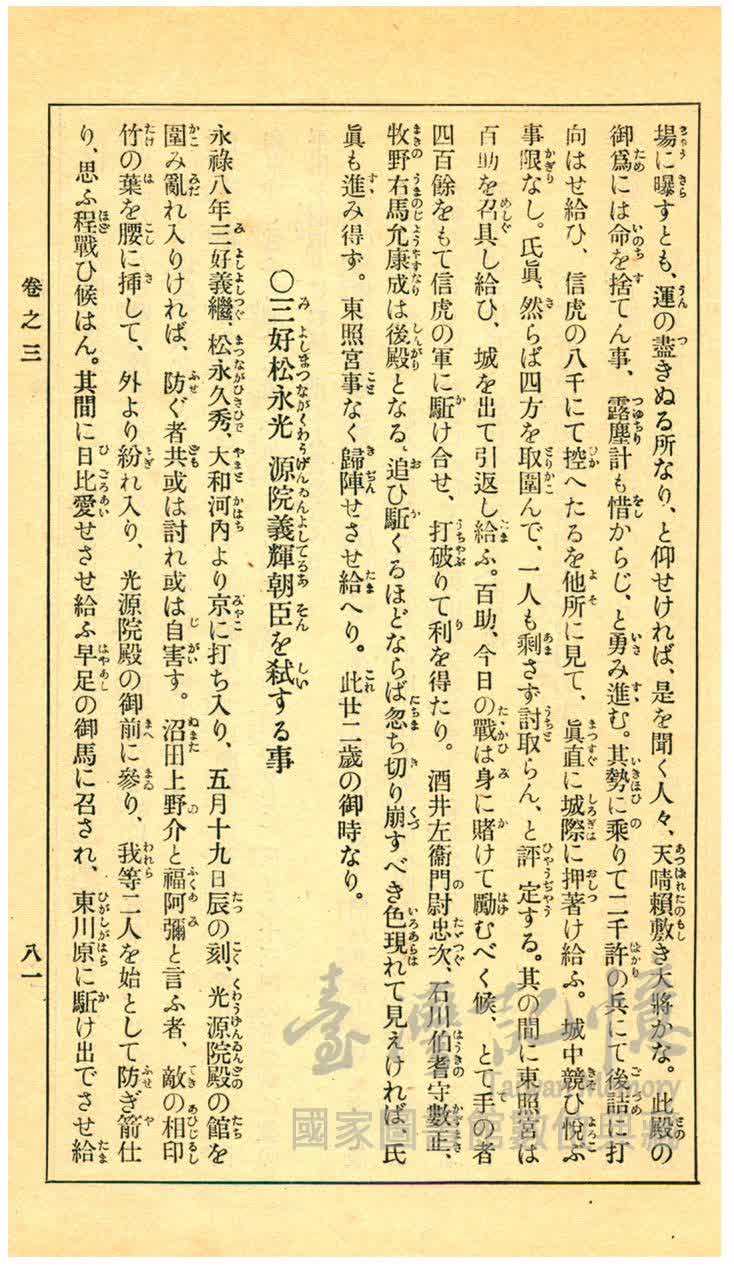 場に曝すとも、運の盡きぬる所なり、と仰せければ、是を聞く人々、天晴賴敷き大將かな。此殿の
御爲には命を捨てん事、露塵計も惜からじ、と勇み進む。其勢に乘りて二千許の兵にて後詰に打
向はせ給ひ、信虎の八千にて控へたるを他所に見て、眞直に城際に押著け給ふ。城中競ひ悅ぶ
事限なし。氏眞、然らば四方を取圍んで、一人も剩さず討取らん、と評定する。其の間に東照宮は
百助を召具し給ひ、城を出て引返し給ふ。百助、今日の戰は身に賭けて勵むべく候、とて手の者
四百餘をもて信虎の軍に駈け合せ、打破りて利を得たり。酒井左衞門尉忠次、石川伯耆守數正、
牧野右馬允康成は後殿となる、追ひ駈くるほどならば忽ち切り崩すべき色現れて見えければ、氏
眞も進み得ず。東照宮事なく歸陣せさせ給へり。此廿二歲の御時なり。
〇三好松永光源院義輝朝臣を弑する事
永祿八年三好義繼、松永久秀、大和河內より京に打ち入り、五月十九日辰の刻、光源院殿の館を
圍み亂れ入りければ、防ぐ者共或は討れ或は自害す。沼田上野介と福阿彌と言ふ者、敵の相印
竹の葉を腰に挿して、外より紛れ入り、光源院殿の御前に參り、我等二人を始として防ぎ箭仕
り、思ふ程戰ひ候はん。其間に日比愛せさせ給ふ早足の御馬に召され、東川原に駈け出でさせ給
卷之三
八一
臺灣記憶
Taiwan Memory
國家圖書館數位典藏